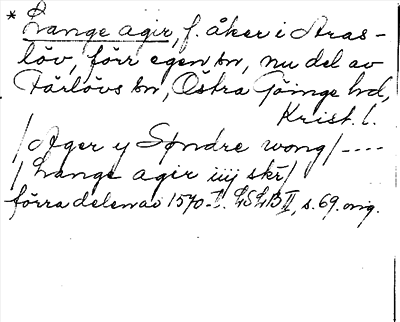 * Lange agir, f. åker i Aras-
löv, förr egen sn, nu del av
Färlövs sn, Östra Göinge hd,
Krist. l.
/Ager y Søndre wong/----
/Lange agir iiij skr/
förra delen av 1570-t. LSLB II, s. 69. orig.